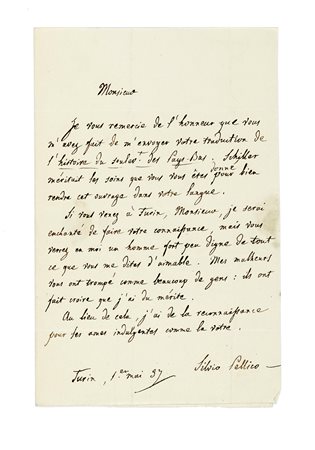 Monsieur
Je vous remercie de l'honneur que vous
m'avez fait de m'envoyer votre traduction de
l'histoire du soulevt. des Pays-Bas. Schiller
méritait les soins que vous vous êtes donné pour bien
rendre cet ouvrage dans votre langue.
Si vous venez à Turin, Monsieur, je serai
enchanté de faire votre connaissance, mais vous
verrez en moi un homme fort peu digne de tout
ce que vous me dites d'aimable. Mes malheurs
vous ont trompé comme beaucoup de gens: ils ont
fait croire que j'ai du mérite.
Au lieu de cela, j'ai de la reconnaissance
pour les ames indulgentes comme la vôtre.
Turin, 1er mai 37
Silvio Pellico